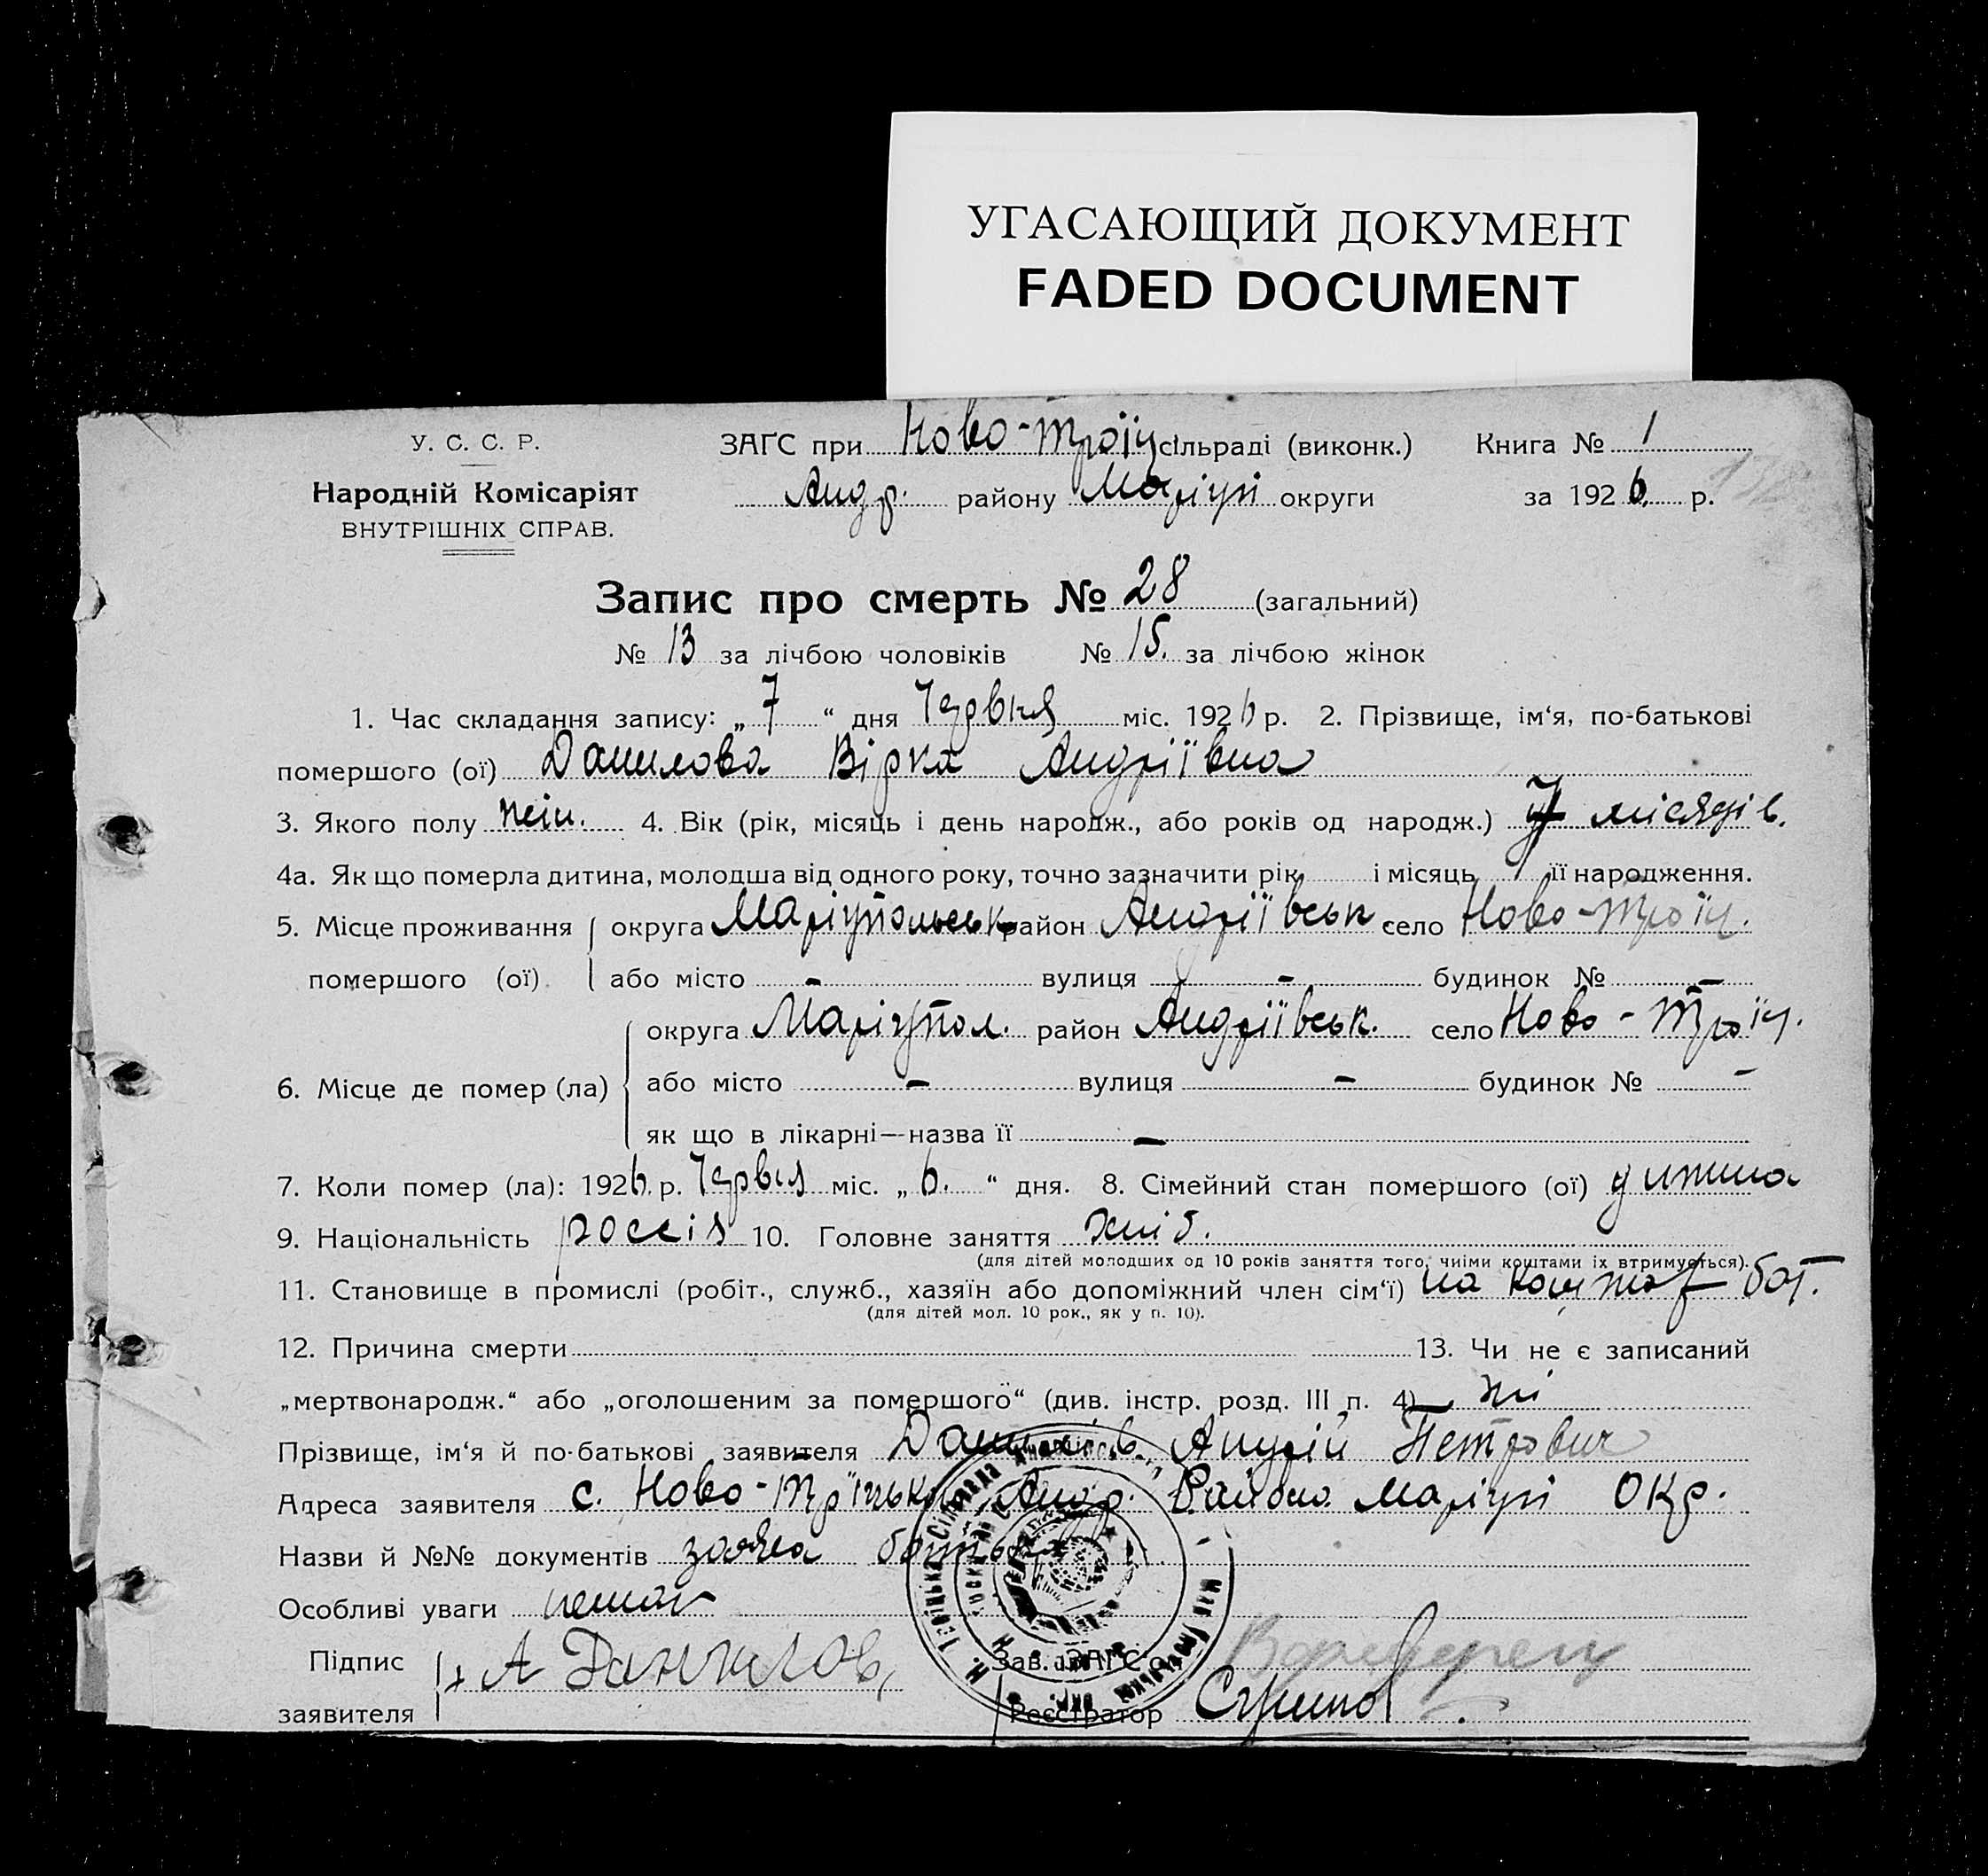 УГАСАЮЩИЙ ДОКУМЕНТ
FADED DOCUMENT
У. С. С. Р.
Народній Комісаріят
ВНУТРІШНІХ СПРАВ.
ЗАҐС при Ново-Троїц сільраді (виконк.) Книга № 1
Андр. району Маріуп округи за 1926 р.
138
Запис про смерть № 28 (загальний)
№ 13 за лічбою чоловіків № 15. за лічбою жінок
1. Час складання запису: „7“ дня Червня міс. 1926 р. 2. Прізвище, ім‘я, по-батькові
помершого (ої) Данилова Вірка Андріївна
3. Якого полу жін. 4. Вік (рік, місяць і день народж., або років од народж.) 7 місяців.
4а. Як що померла дитина, молодша від одного року, точно зазначити рік і місяць її народження.
5. Місце проживання округа Маріупольськ район Андріївськ село Ново-Троїц.
помершого (ої) або місто – вулиця – будинок № –
округа Маріупол. район Андріївськ. село Ново-Троїц.
6. Місце де помер (ла) або місто – вулиця – будинок № –
як що в лікарні—назва її –
7. Коли помер (ла): 1926 р. Червня міс. „6.“ дня. 8. Сімейний стан помершого (ої) дитина
9. Національність россія 10. Головне заняття хліб.
(для дітей молодших од 10 років заняття того, чиїми коштами їх втримується).
11. Становище в промислі (робіт., служб., хазяїн або допоміжний член сім‘ї) на коштах бат.
(для дітей мол. 10 рок., як у п. 10).
12. Причина смерти 13. Чи не є записаний
„мертвонародж.“ або „оголошеним за помершого“ (див. інстр. розд. III п. 4) ні
Прізвище, ім‘я й по-батькові заявителя Данилів Андрій Петрович
Адреса заявителя с. Ново-Троїцьк Андр. Района Маріуп Окр.
Назви й №№ документів заява батька
Особливі уваги немає
Підпис А Данилов, Зав. ЗАГС‘ом
заявителя Реєстратор